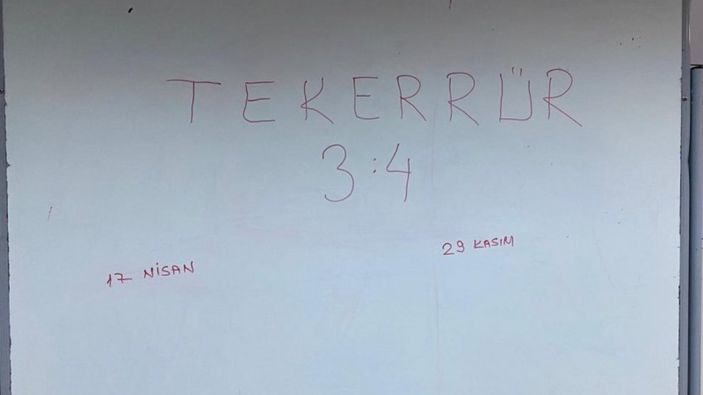 TEKERRÜR
3:4
17 NİSAN
29 KASIM